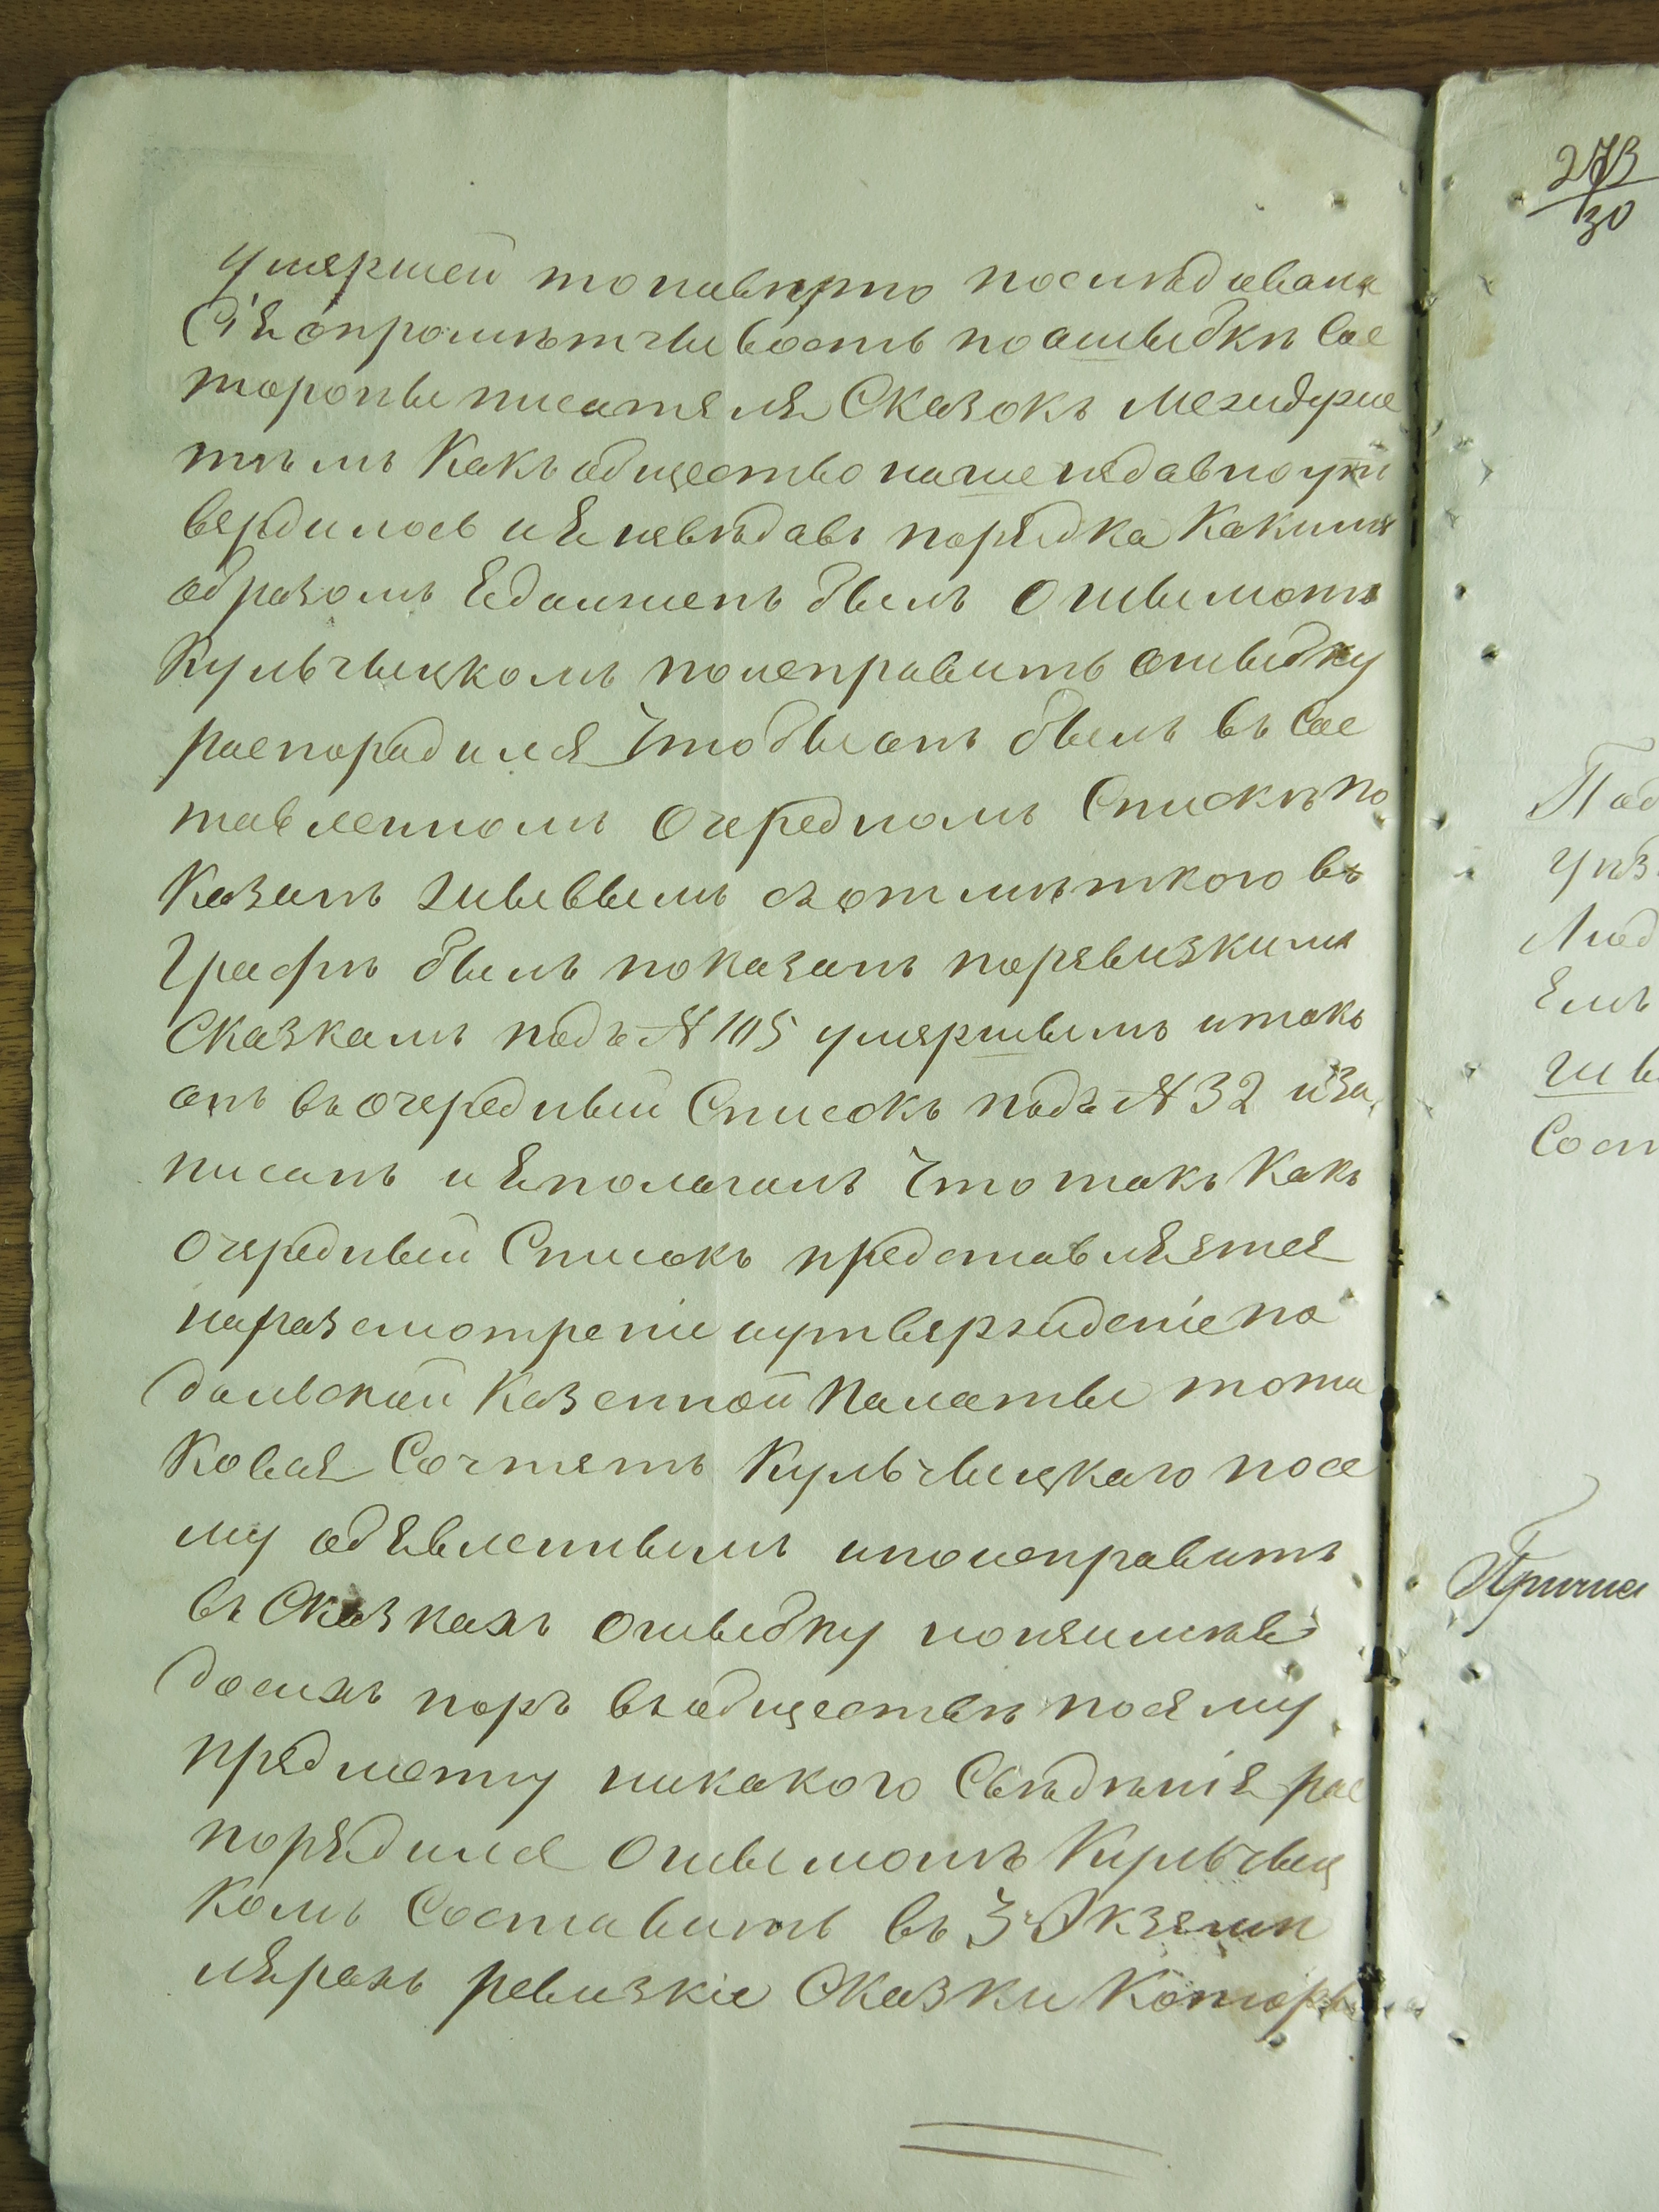 273
30
умершей то наверно последовала
Сія опрометчивость по ошыбкѣ Сос
тороны писателя Сказокъ между же
тѣмъ Какъ общество наше недавно ут
вердилось и я неведавъ порядка Какимъ
образомъ я долженъ былъ О шымонѣ
Кульчыцкомъ поисправить ошыбку
распорядился Чтобы онъ былъ въ Сос
тавленномъ Очередномъ Спискѣ по
Казанъ жывымъ съ отмѣткою въ
Графѣ былъ показанъ поревизкимъ
Сказкамъ подъ N 105 умершымъ итакъ
онъ въ очередный Списокъ подъ N 32 иза
писанъ и я полагалъ Что такъ Какъ
Очередный Списокъ представляется
на разсмотреніе и утвержденіе по
дольской Казенной Палаты то та
Ковая Сочтетъ Кульчыцкаго посе
му объявленнымъ и поисправитъ
въ Сказкахъ Ошыбку но неимѣя
до сихъ поръ въ обществѣ по сему
предмету никакого Свѣдѣнія рас
порядился О шымонѣ Кульчыц
Комъ Составить въ 3 Экземп
лярахъ ревизкіе Сказки Которы
Под
Люд
Емъ
жы
Сост
Причи